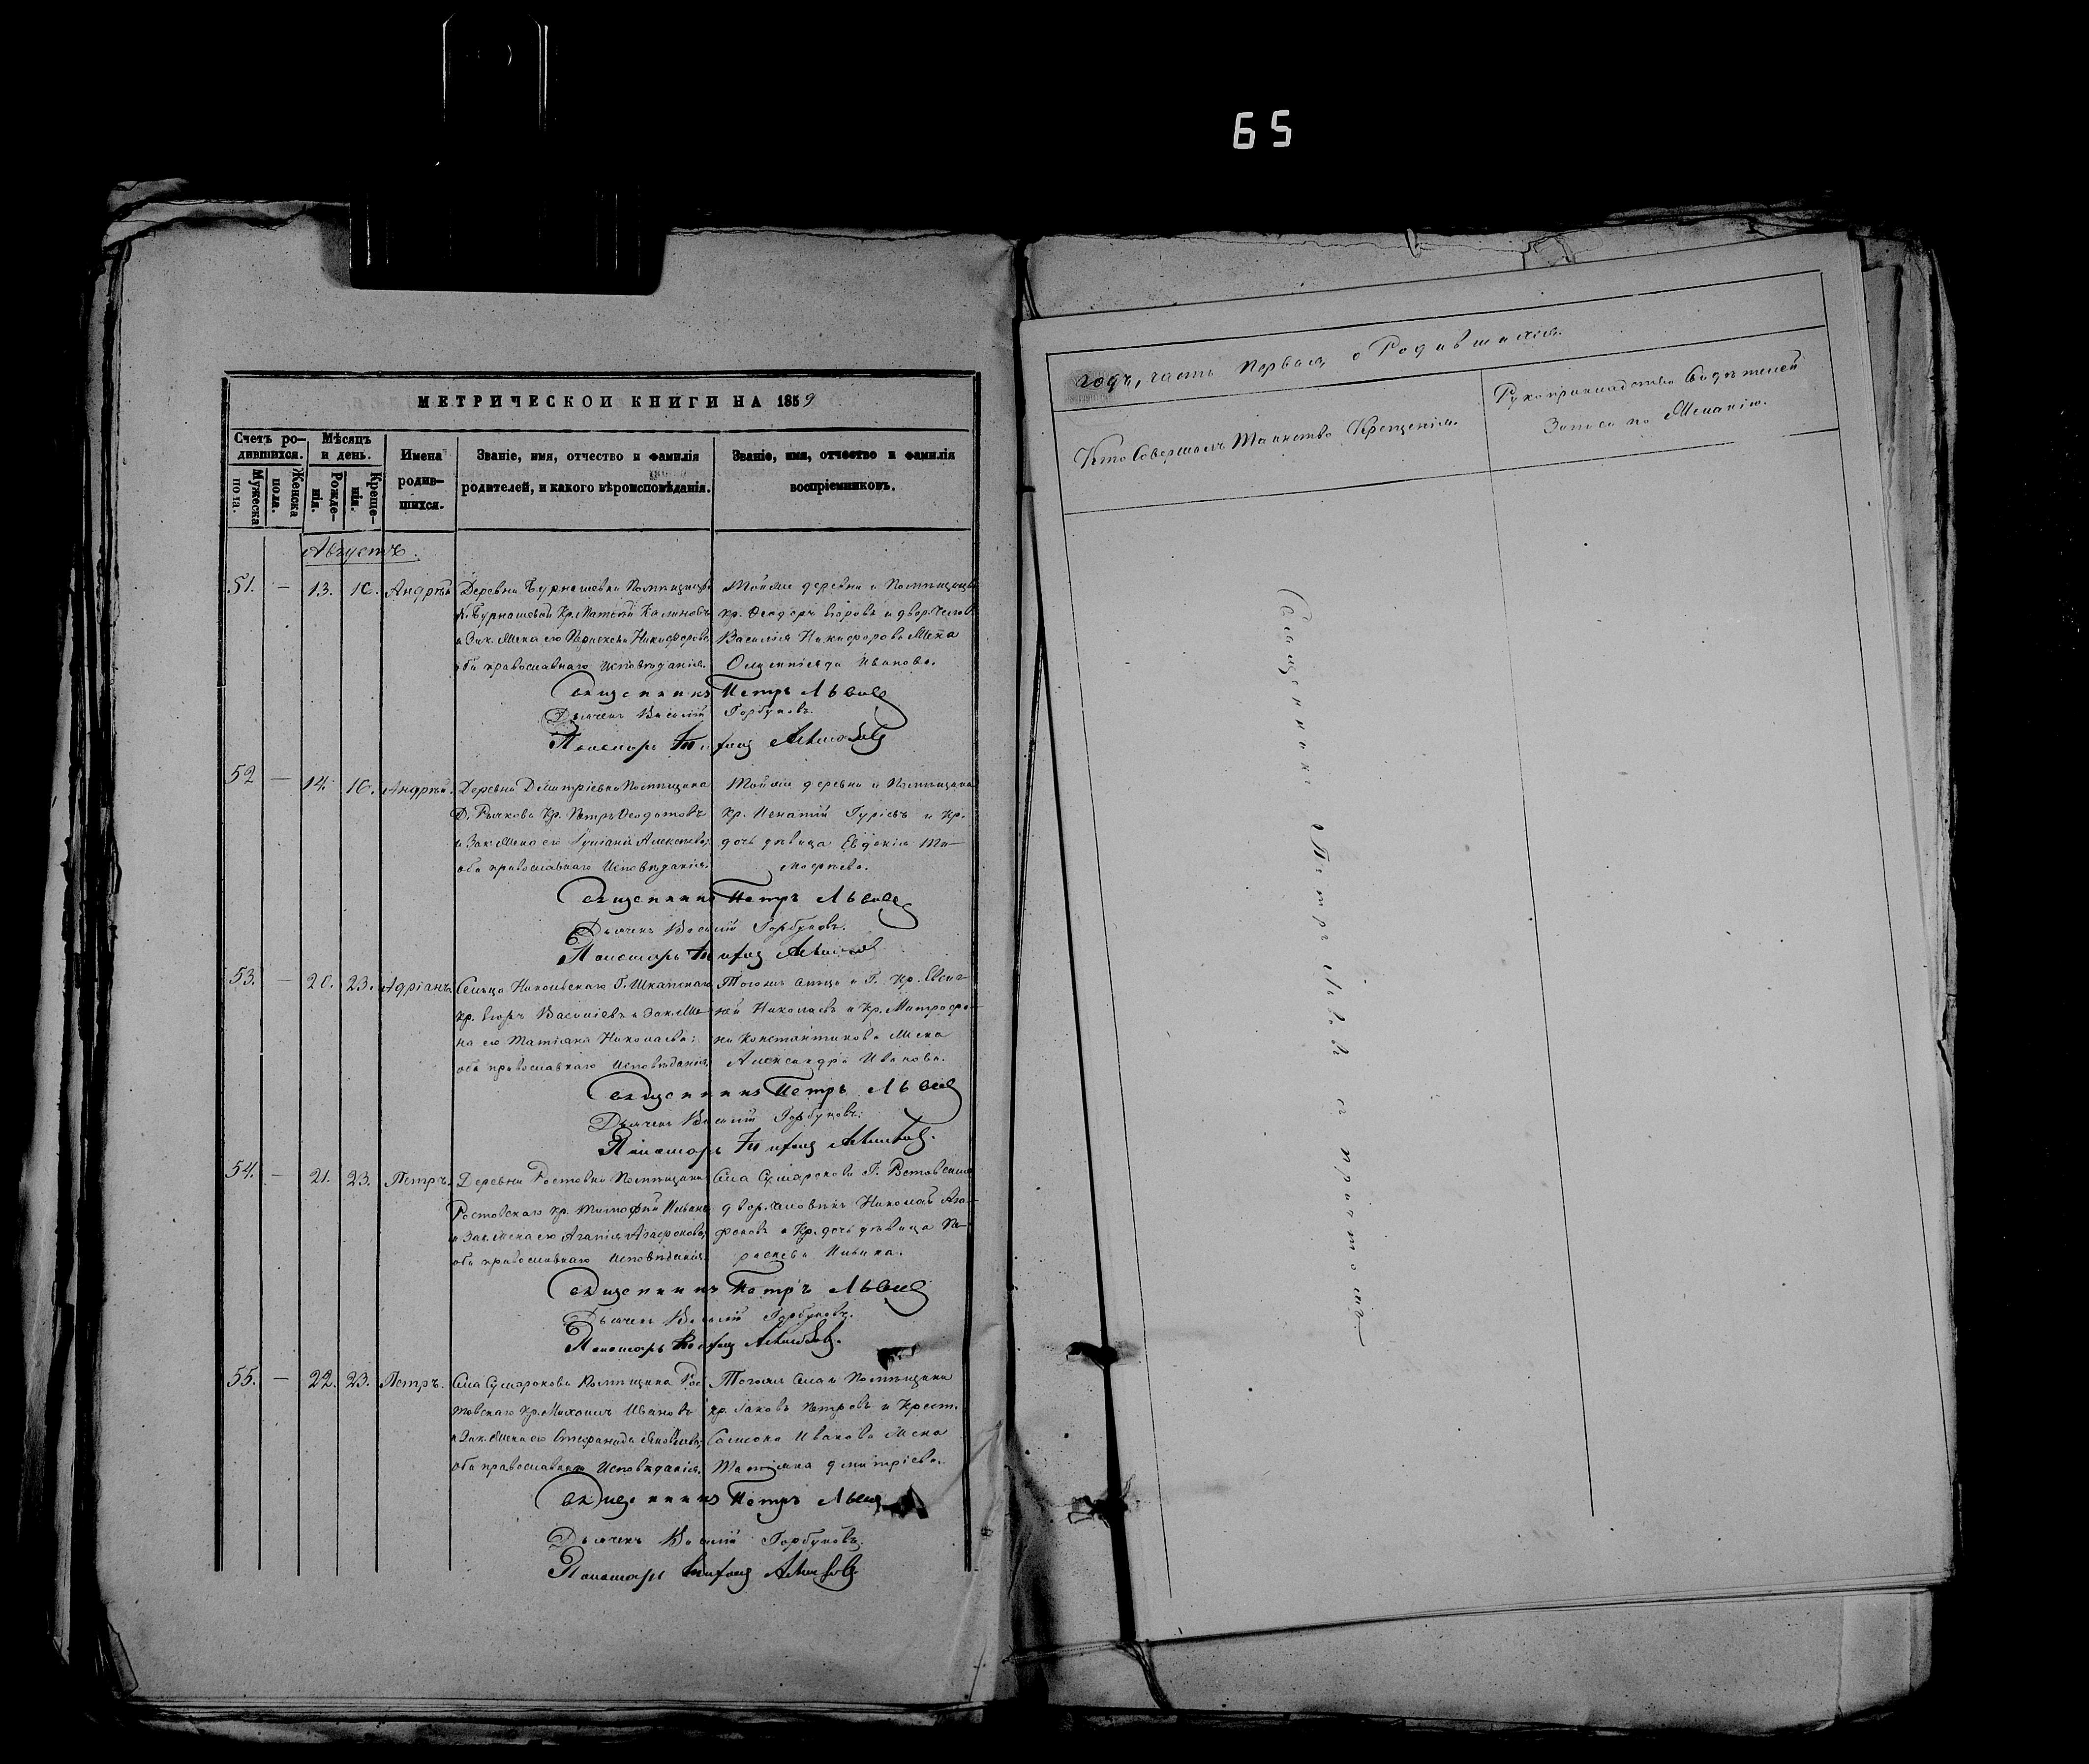 65
МЕТРИЧЕСКОИ КНИГИ НА 1859
Счетъ ро-
дившихся.
Мужеска
пола.
Женска
пола.
Мѣсяцъ
и день.
Рожде-
нія.
Креще-
нія.
Имена
родив-
шихся.
Званіе, имя, отчество и фамилія
родителей, и какого вѣроисповѣданія.
Званіе, имя, отчество и фамилія
воспріемниковъ.
Августъ.
51. — 13. 16. Андрей
Деревни Бурнашевки Помѣщицы
Бурнашевой Кр. Калиновъ
и Зак. Жена его Никифорова
оба православнаго исповѣданія.
Тойже деревни и Помѣщицы
кр. Ѳеодоръ Егоровъ и двор. челов.
Василія Никифорова Жена
Иванова.
Священникъ Петръ Львовъ
Дьячекъ Василій Горбуновъ.
Пономарь
52 — 14. 16. Андрей.
Деревни Дмитріевки Помѣщика
Д. Рычкова Кр. Петръ Ѳеодотовъ
и Зак. Жена его Алексѣева;
оба православнаго Исповѣданія.
Тойже деревни и Помѣщика
Кр. Игнатій Гурьевъ и Кр.
дочь дѣвица Евдокія Ти-
моѳеева.
Священникъ Петръ Львовъ
Дьячекъ Василій Горбуновъ.
Пономарь
53. — 20. 23. Адріанъ
Сельца Никольскаго Г. Шкапскаго
кр. Егоръ Васильевъ и Зак. Же-
на его Татіана Николаева;
оба православнаго исповѣданія,
Тогожъ сельца и Г. Кр. Евге-
ній Николаевъ и Кр. Митрофа-
на Константинова Жена
Александра Иванова.
Священникъ Петръ Львовъ
Дьячекъ Василій Горбуновъ.
Пономарь
54. — 21. 23. Петръ.
Деревни Ростовки Помѣщика
Ростовскаго кр. Тимофей
и Зак. Жена его Агапія Агафонова;
оба православнаго исповѣданія.
Села Сумарокова Г. Ростовскаго
двор. человѣкъ Николай Ага-
фоновъ и Кр. дочь дѣвица Па-
раскева
Священникъ Петръ Львовъ
Дьячекъ Василій Горбуновъ.
Пономарь
55. — 22. 23. Петръ.
Села Сумарокова Помѣщика Рос-
товскаго Кр. Михаилъ Ивановъ
и Зак. Жена его Стефанида
оба православнаго Исповѣданія.
Тогоже села и Помѣщика
кр. Іаковъ Петровъ и Крест.
Иванова Жена
Татіяна Димитріева.
Священникъ Петръ Львовъ
Дьячекъ Василій Горбуновъ.
Пономарь
годъ, часть первая, о Родившихся.
Кто Совершалъ Таинство Крещенія.
Рукоприкладство Свидѣтелей
Записи по Желанію.
Священникъ Петръ Львовъ съ причтомъ